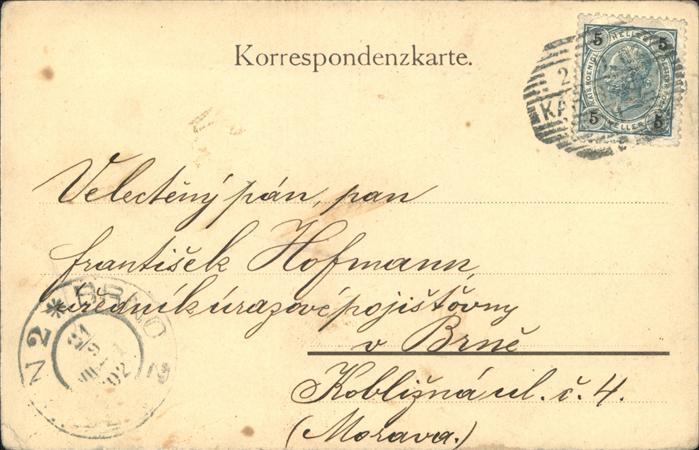 Korrespondenzkarte.
5 HELLER 5
5 HELLER 5
2
KA
Velectěný pán, pan
František Hofmann,
úředník úrazové pojišťovny
v Brně
Kobližná ul. č. 4.
(Morava.)
BRNO
21
9
02
N 2